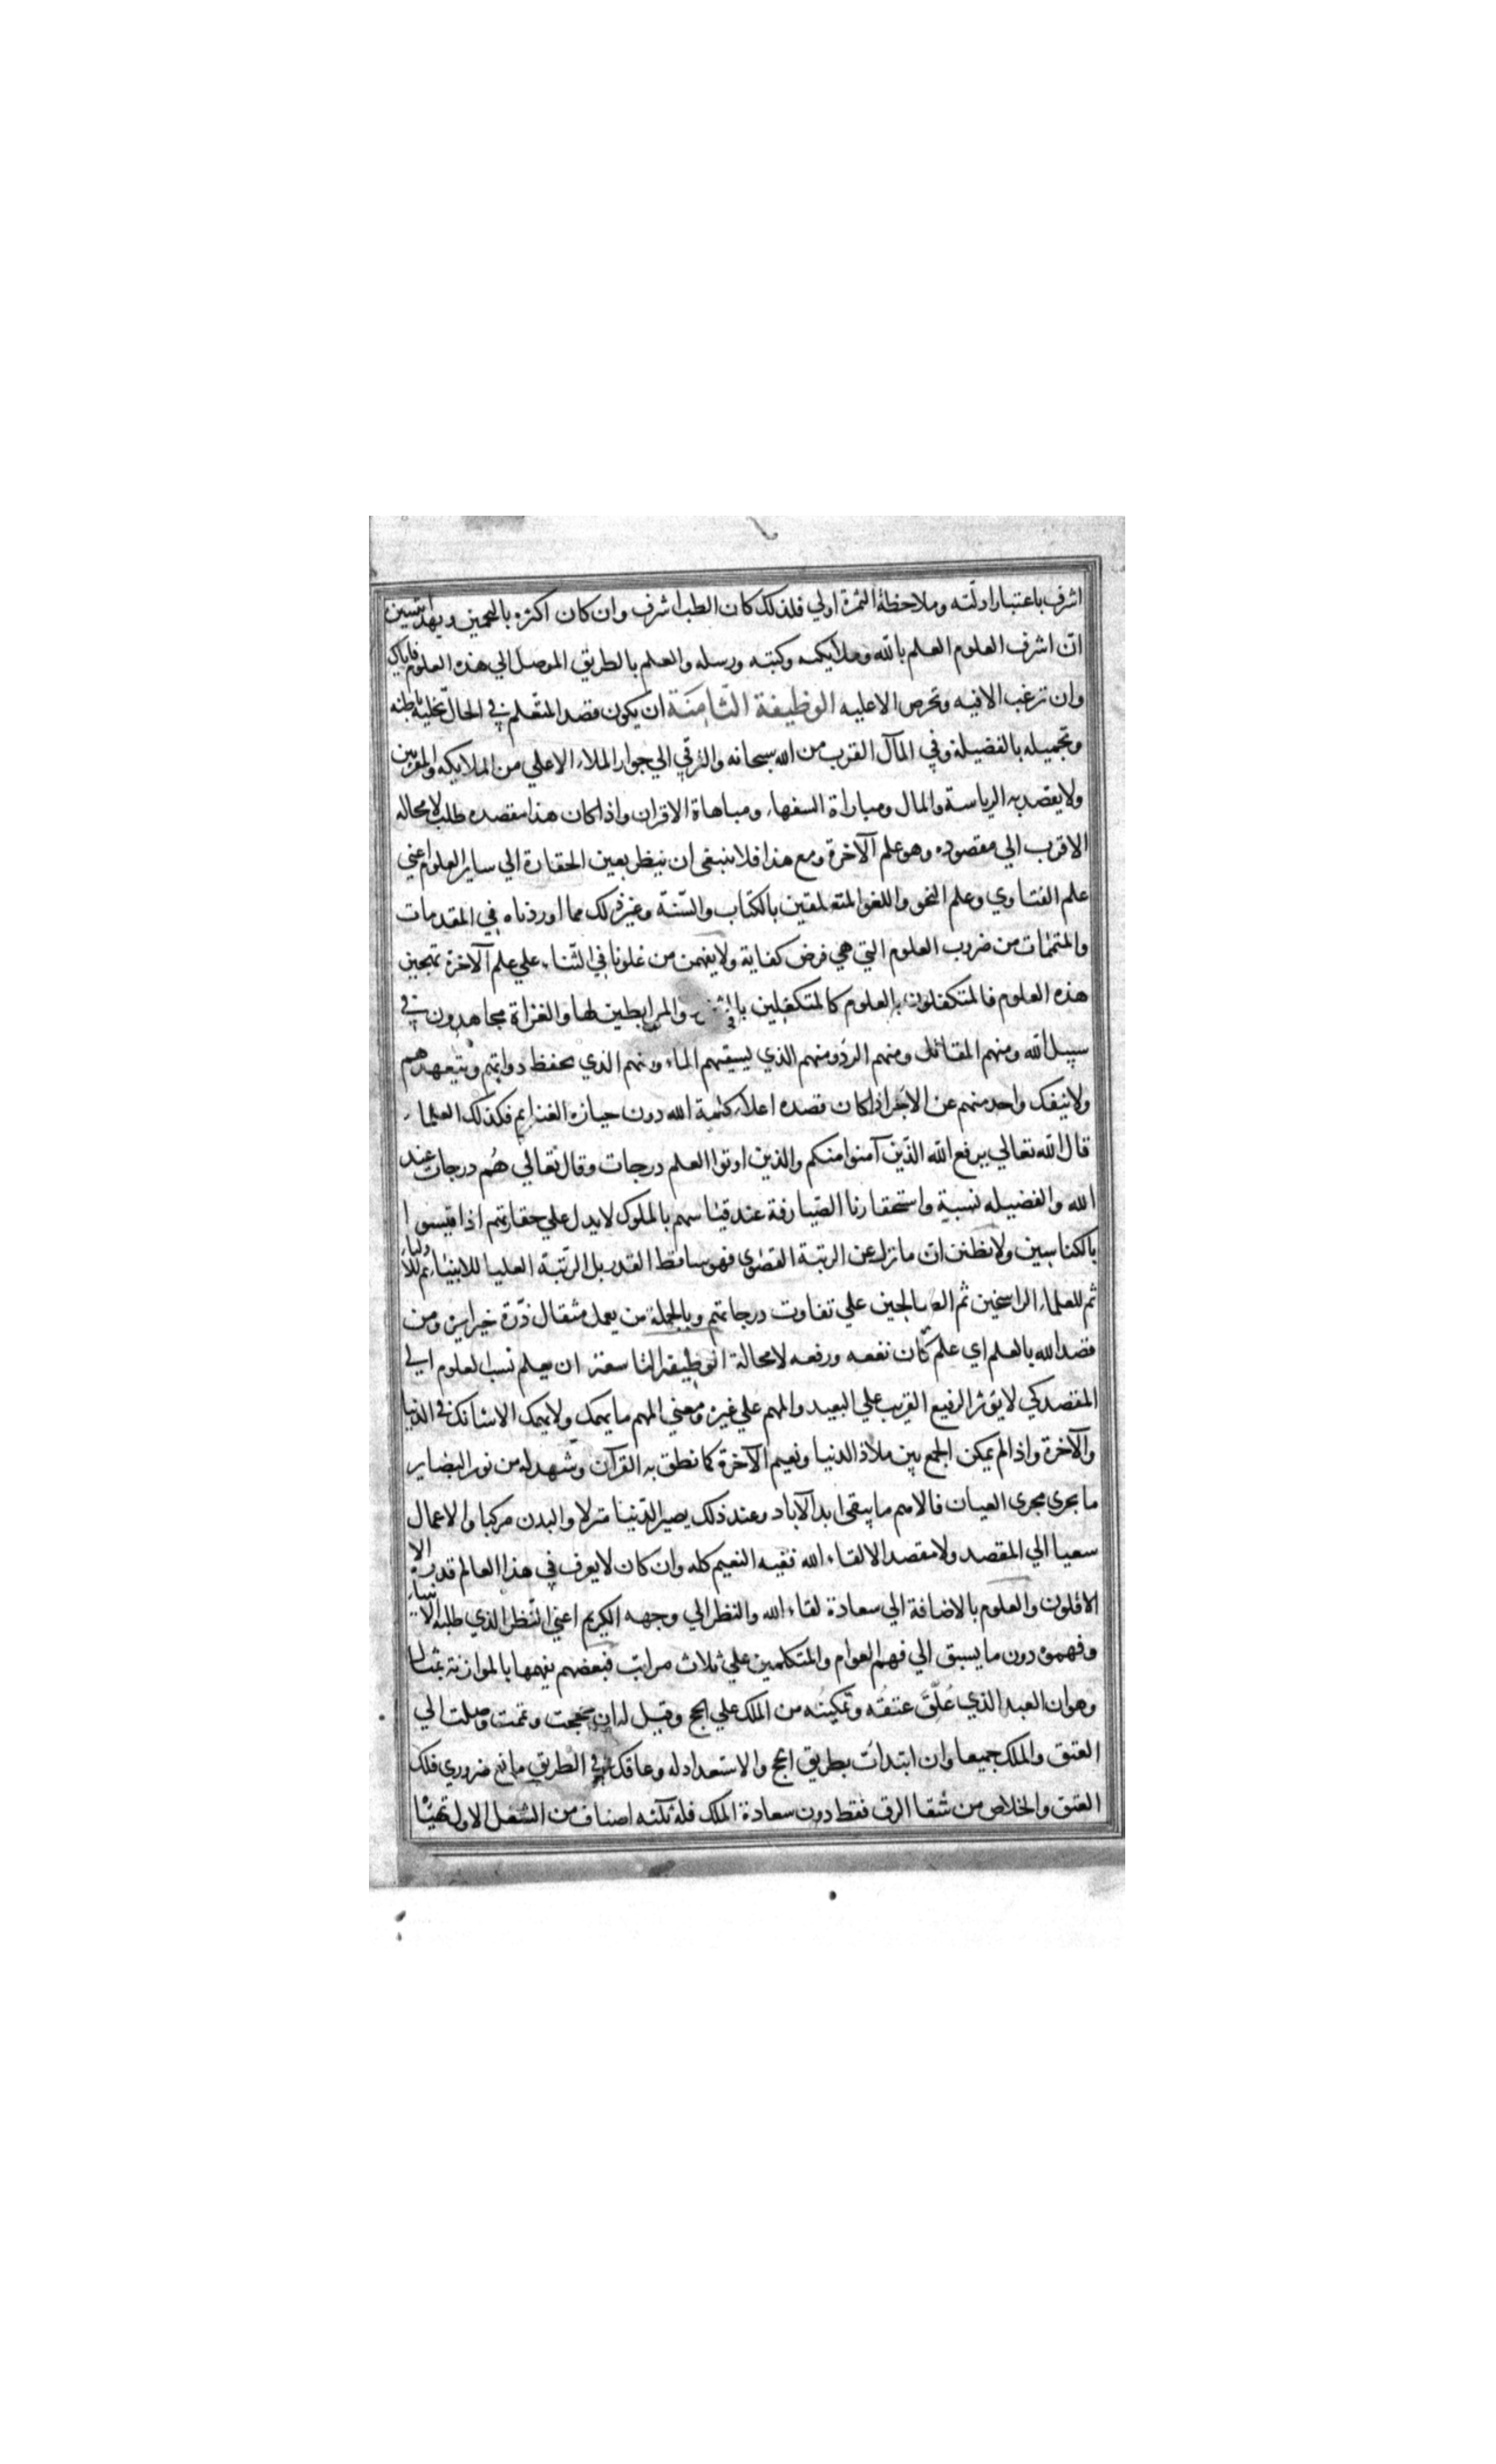 اشرف باعتبار ادلّته وملاحظة الثمرة اولي فلذلك كان الطب اشرف وان كان اكثره بالتخمين وبهذا تبين
انّ اشرف العلوم العلم بالله وملايكته وكتبه ورسله والعلم بالطريق الموصل الي هذه العلوم فاياك
وان ترغب الا فيه وتحرص الا عليه الوظيفة الثّامِنَة ان يكون قصد المتعلم في الحال تحلية باطنه
وتجميله بالفضيلة وفي المآل القرب من الله سبحانه والترقي الي جوار الملاء الاعلي من الملايكه والمقربين
ولا يقصد به الرياسة والمال ومباراة السفهاء ومباهاة الاقران واذا كان هذا مقصده طلب لا محاله
الاقرب الي مقصوده وهو علم الآخرة ومع هذا فلا ينبغي ان ينظر بعين الحقارة الي ساير العلوم اعني
علم الفتاوي وعلم النحو واللغو المتعلقين بالكتاب والسّنّة وغير ذلك مما اوردناه في المقدمات
والمتممات من ضروب العلوم التي هي فرض كفاية ولا يفهمن من غلونا في الثناء علي علم الآخرة تهجين
هذه العلوم فالمتكفلون بالعلوم كالمتكفلين والمرابطين لها والغزاة مجاهدون في
سبيل الله ومنهم المقاتل ومنهم الردؤ ومنهم الذي يسقيهم الماء ومنهم الذي يحفظ دوابهم ويتعهدهم
ولا ينفك واحد منهم عن الاجر اذا كان قصده اعلاء كلمة الله دون حيازه الغنايم فكذلك العلماء
قال الله تعالي يرفع الله الذين آمنوا منكم والذين اوتوا العلم درجات وقال تعالي هُم درجات عند
الله والفضيله نسبية واستحقارنا الصّيارفة عند قياسهم بالملوك لا يدل علي حقارتهم اذا قيسوا
بالكناسين ولا تظنن ان ما نزل عن الرتبة القصوي فهو ساقط القدر بل الرّتبة العليا للانبياء ثم للاولياء
ثم للعلماء الراسخين ثم الصالحين علي تفاوت درجاتهم وبالجملة من يعمل مثقال ذرة خيرا يره ومن
قصد الله بالعلم اي علم كان نفعه ورفعه لا محالة الوظيفة التاسعة ان يعلم نسب العلوم الي
المقصد كي لا يؤثر الرفيع القريب علي البعيد والمهم علي غيره ومعني المهم ما يهمك ولا يهمك الا شانك في الدنيا
والآخرة واذا لم يمكن الجمع بين ملاذ الدنيا ونعيم الآخرة كما نطق به القرآن وشهد له من نور البصاير
ما يجري مجري العيان فالاهم ما يبقي ابد الآباد وعند ذلك يصير الدّنيا منزلا والبدن مركبا والاعمال
سعيا الي المقصد ولا مقصد الا لقاء الله ففيه النعيم كله وان كان لا يعرف في هذا العالم قدره الا
الاقلون والعلوم بالاضافة الي سعادة لقاء الله والنظر الي وجهه الكريم اعني النّظر الذي طلبه الانبياء
وفهموه دون ما يسبق الي فهم العوام والمتكلمين علي ثلاث مراتب فبعضهم يفهمها بالموازنة بمثال
وهو ان العبد الذي عُلّقَ عتقُه وتمكينه من الملك علي الحج وقيل له ان حججت وتممت وصلت الي
العتق والملك جميعا وان ابتدات بطريق الحج والاستعداد له وعاقك في الطريق مانع ضروري فلك
العتق والخلاص من شقا الرق فقط دون سعادة الملك فله ثلثه اصناف من الشغل الاول تهيئة